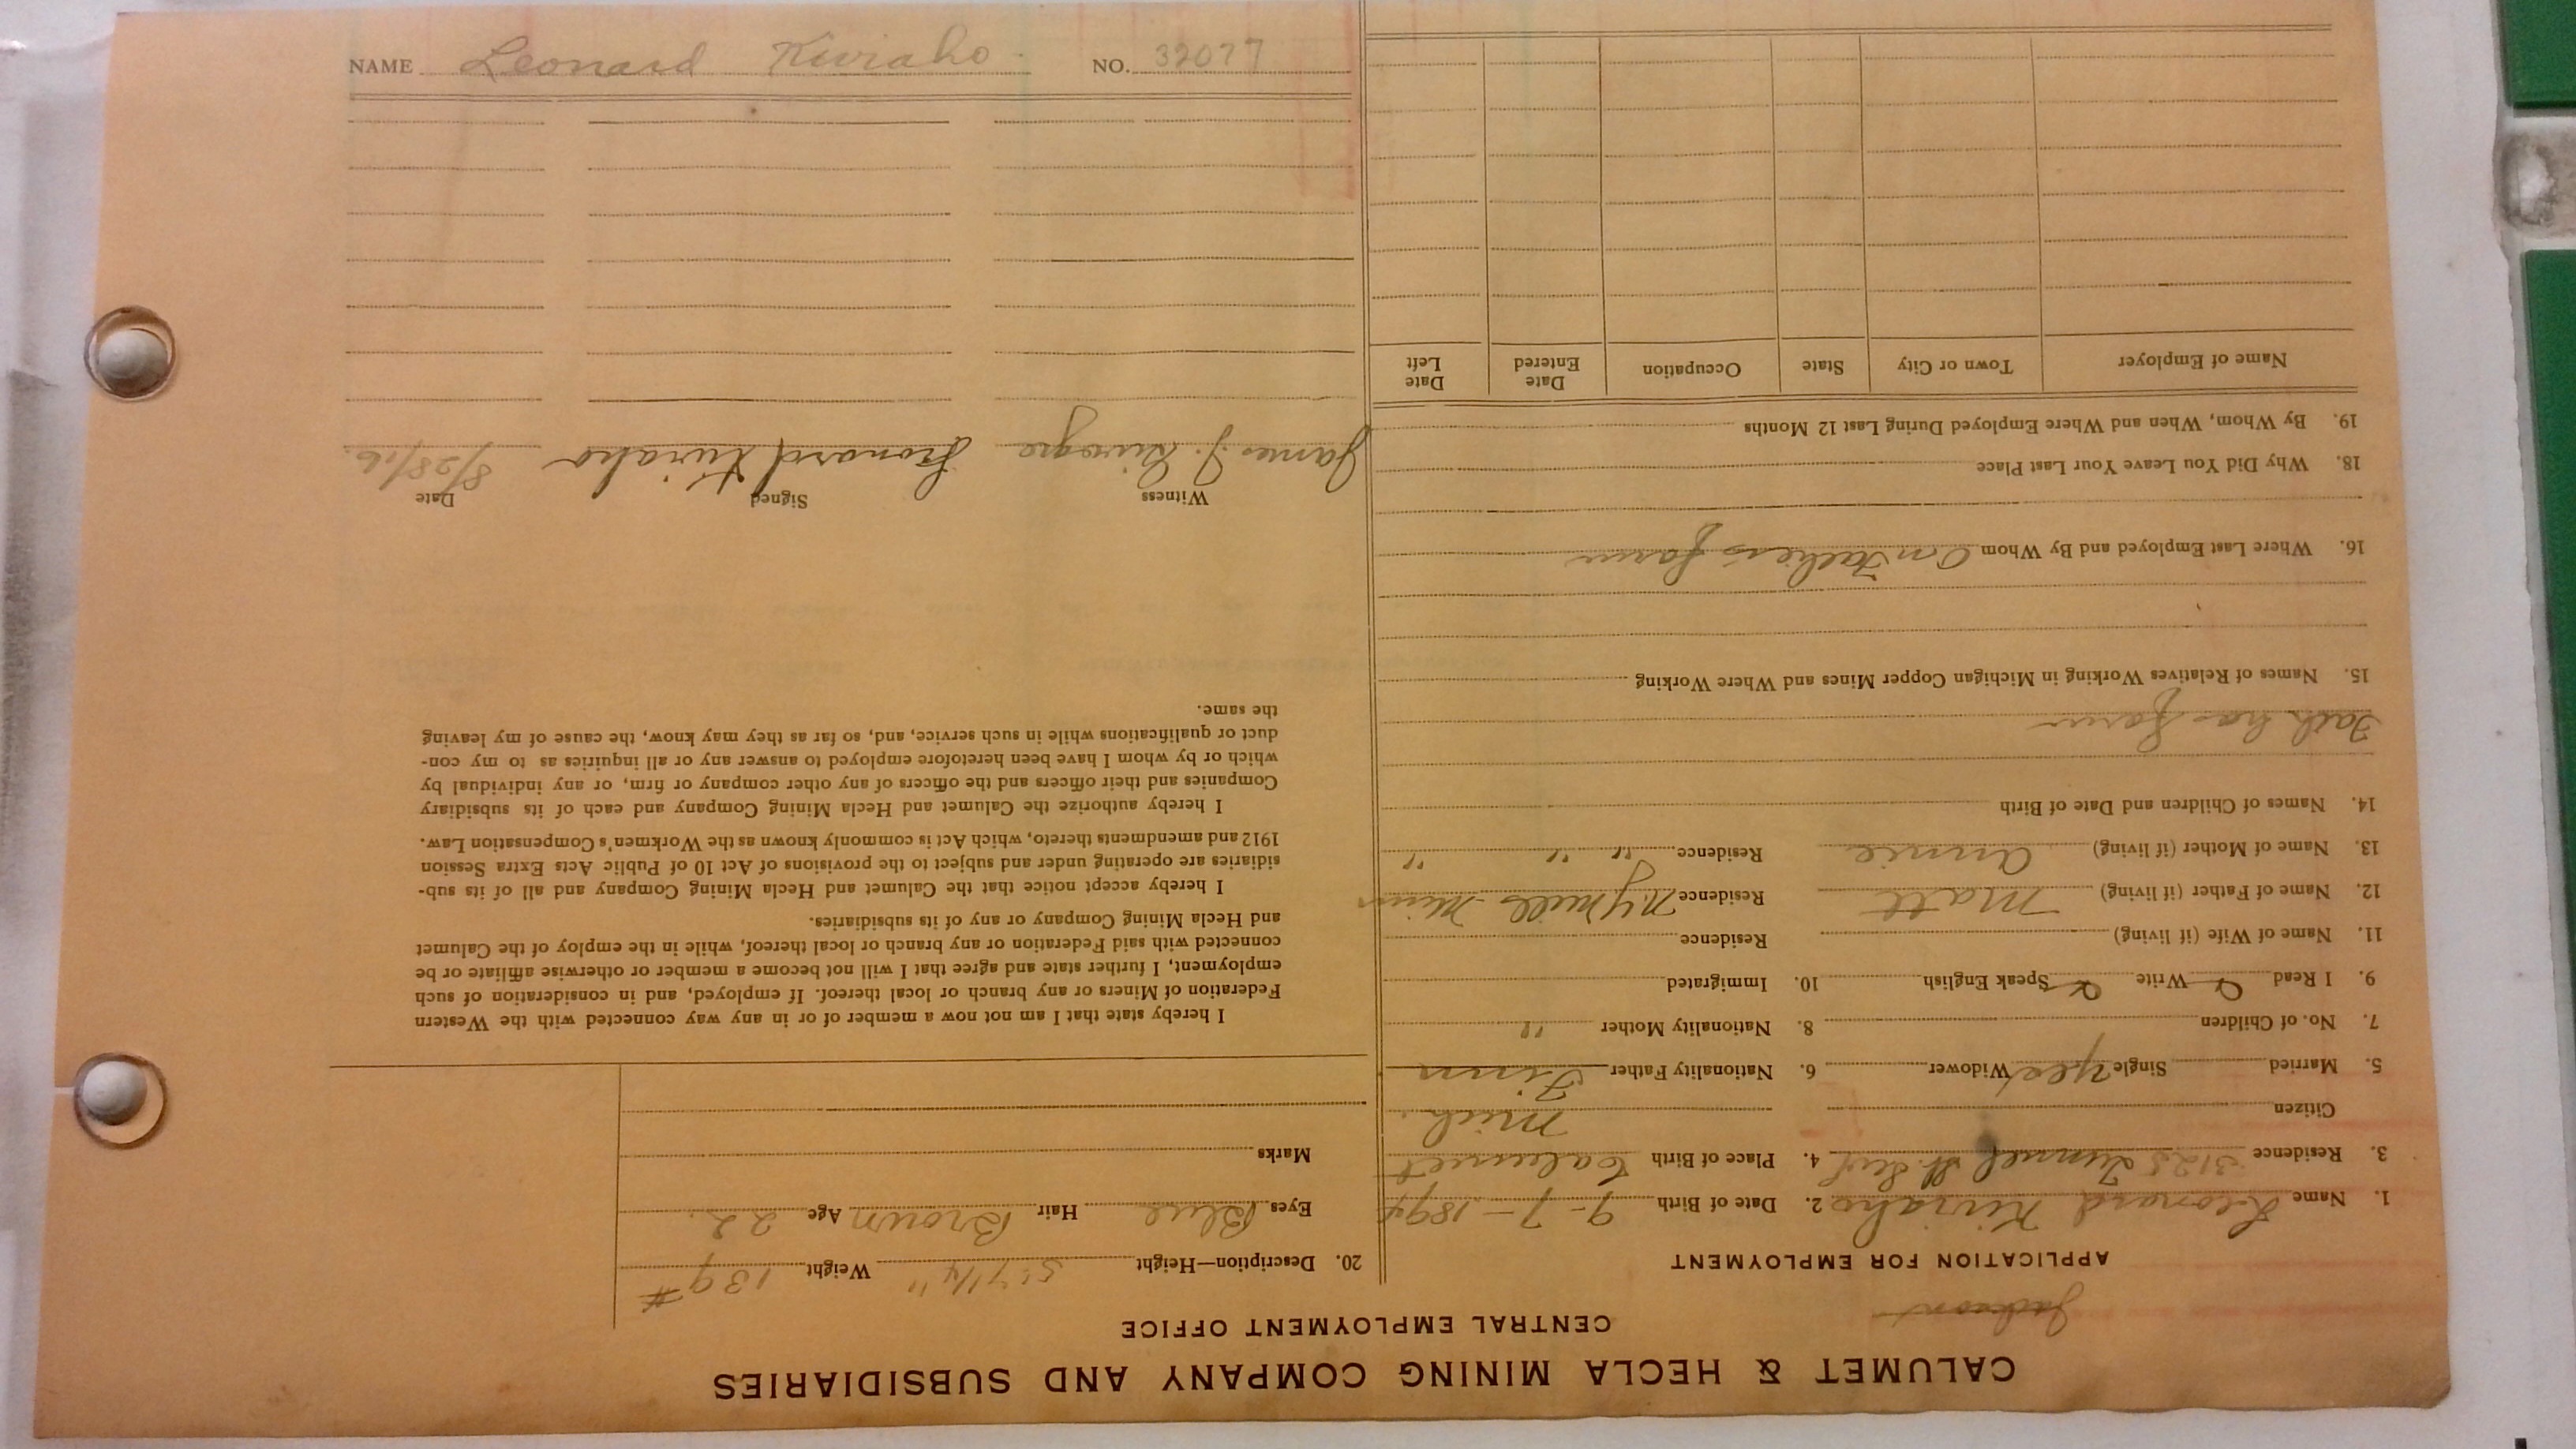 CALUMET & HECLA MINING COMPANY AND SUBSIDIARIES
CENTRAL EMPLOYMENT OFFICE
APPLICATION FOR EMPLOYMENT
1. Name Leonard Kiviaho 2. Date of Birth 9-7-1894
3. Residence 3125 Tunnel St. 4. Place of Birth Calumet
Citizen Mich.
5. Married Single Yes Widower 6. Nationality Father Finn
7. No. of Children 8. Nationality Mother "
9. I Read Write Speak English 10. Immigrated
11. Name of Wife (if living) Residence
12. Name of Father (if living) Matt Residence N.Y. Mills Minn
13. Name of Mother (if living) Annie Residence " " "
14. Names of Children and Date of Birth
Fath has farm
15. Names of Relatives Working in Michigan Copper Mines and Where Working
16. Where Last Employed and By Whom On Father's farm
18. Why Did You Leave Your Last Place
19. By Whom, When and Where Employed During Last 12 Months
Name of Employer Town or City State Occupation Date Entered Date Left
20. Description—Height 5' 7 1/4" Weight 139 #
Eyes Blue Hair Brown Age 22.
Marks
I hereby state that I am not now a member of or in any way connected with the Western
Federation of Miners or any branch or local thereof. If employed, and in consideration of such
employment, I further state and agree that I will not become a member or otherwise affiliate or be
connected with said Federation or any branch or local thereof, while in the employ of the Calumet
and Hecla Mining Company or any of its subsidiaries.
I hereby accept notice that the Calumet and Hecla Mining Company and all of its sub-
sidiaries are operating under and subject to the provisions of Act 10 of Public Acts Extra Session
1912 and amendments thereto, which Act is commonly known as the Workmen's Compensation Law.
I hereby authorize the Calumet and Hecla Mining Company and each of its subsidiary
Companies and their officers and the officers of any other company or firm, or any individual by
which or by whom I have been heretofore employed to answer any or all inquiries as to my con-
duct or qualifications while in such service, and, so far as they may know, the cause of my leaving
the same.
Witness Signed Date
James J. Leonard Kiviaho 8/28/16.
NAME Leonard Kiviaho NO. 32077